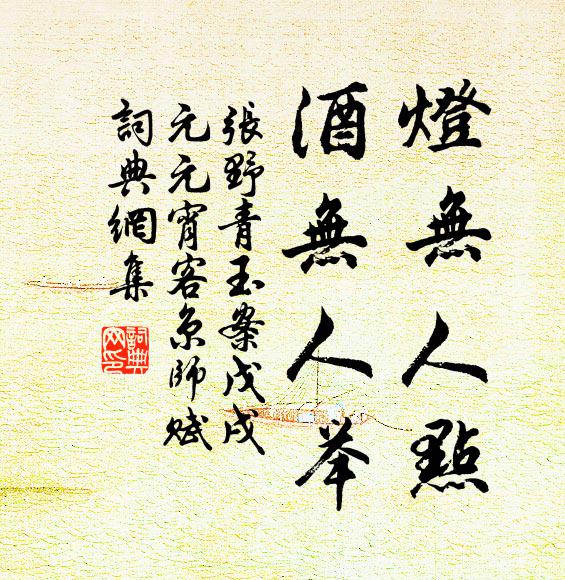 燈無人點
酒無人举
張野青玉案戊戌
元元宵客京師賦
詞典網集
詞典
網印